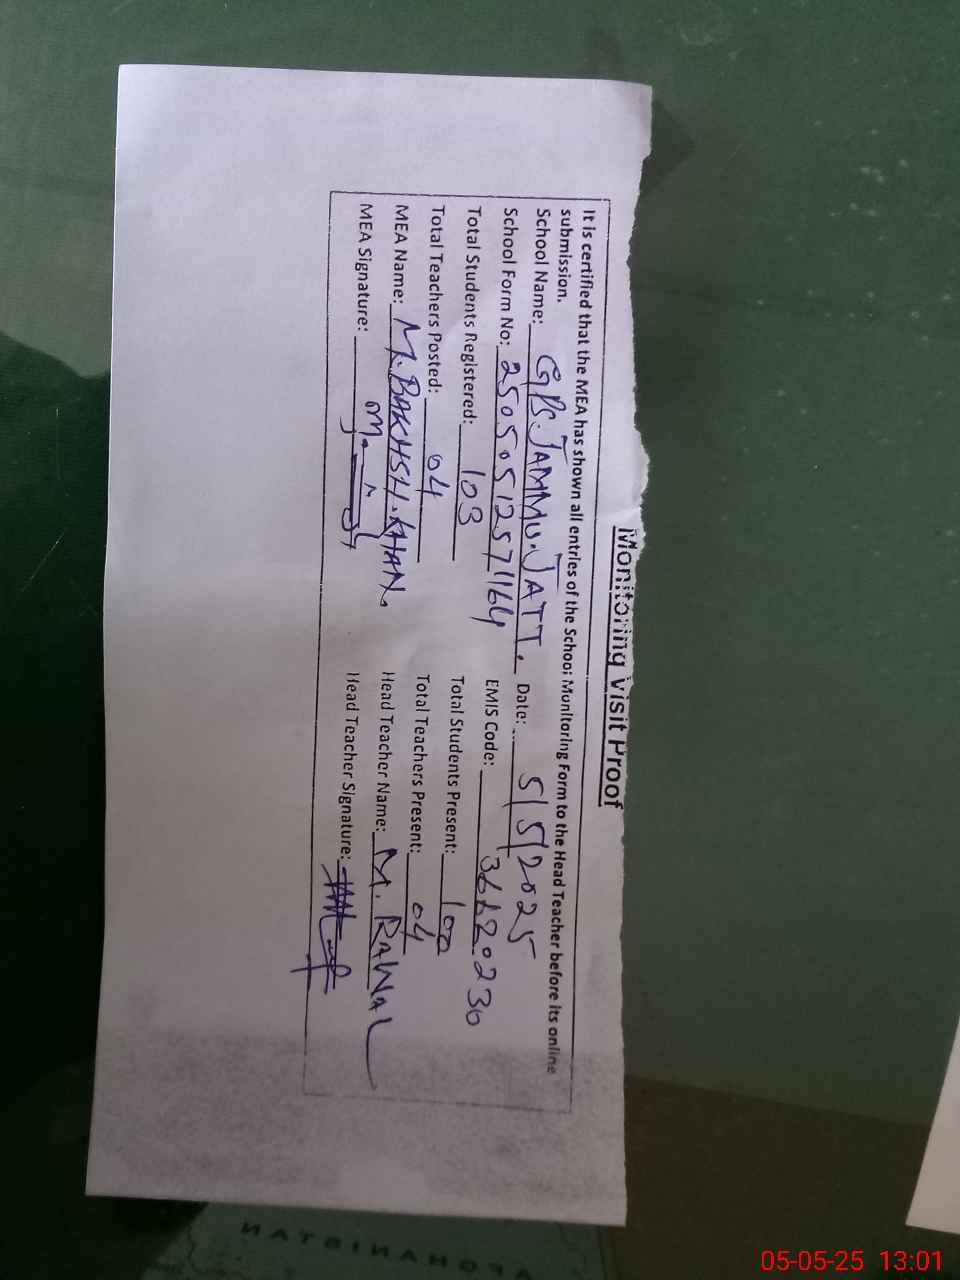 Monitoring Visit Proof
It is certified that the MEA has shown all entries of the School Monitoring Form to the Head Teacher before its online
submission.
School Name: GPS JAMMU.JATT. Date: 5/5/2025
School Form No: 25050512571164 EMIS Code: 36620230
Total Students Registered: 103 Total Students Present: 100
Total Teachers Posted: 04 Total Teachers Present: 04
MEA Name: M.BAKHSH.KHAN. Head Teacher Name: M. RAWAL
MEA Signature: Head Teacher Signature:
GHANISTAN
05-05-25 13:01